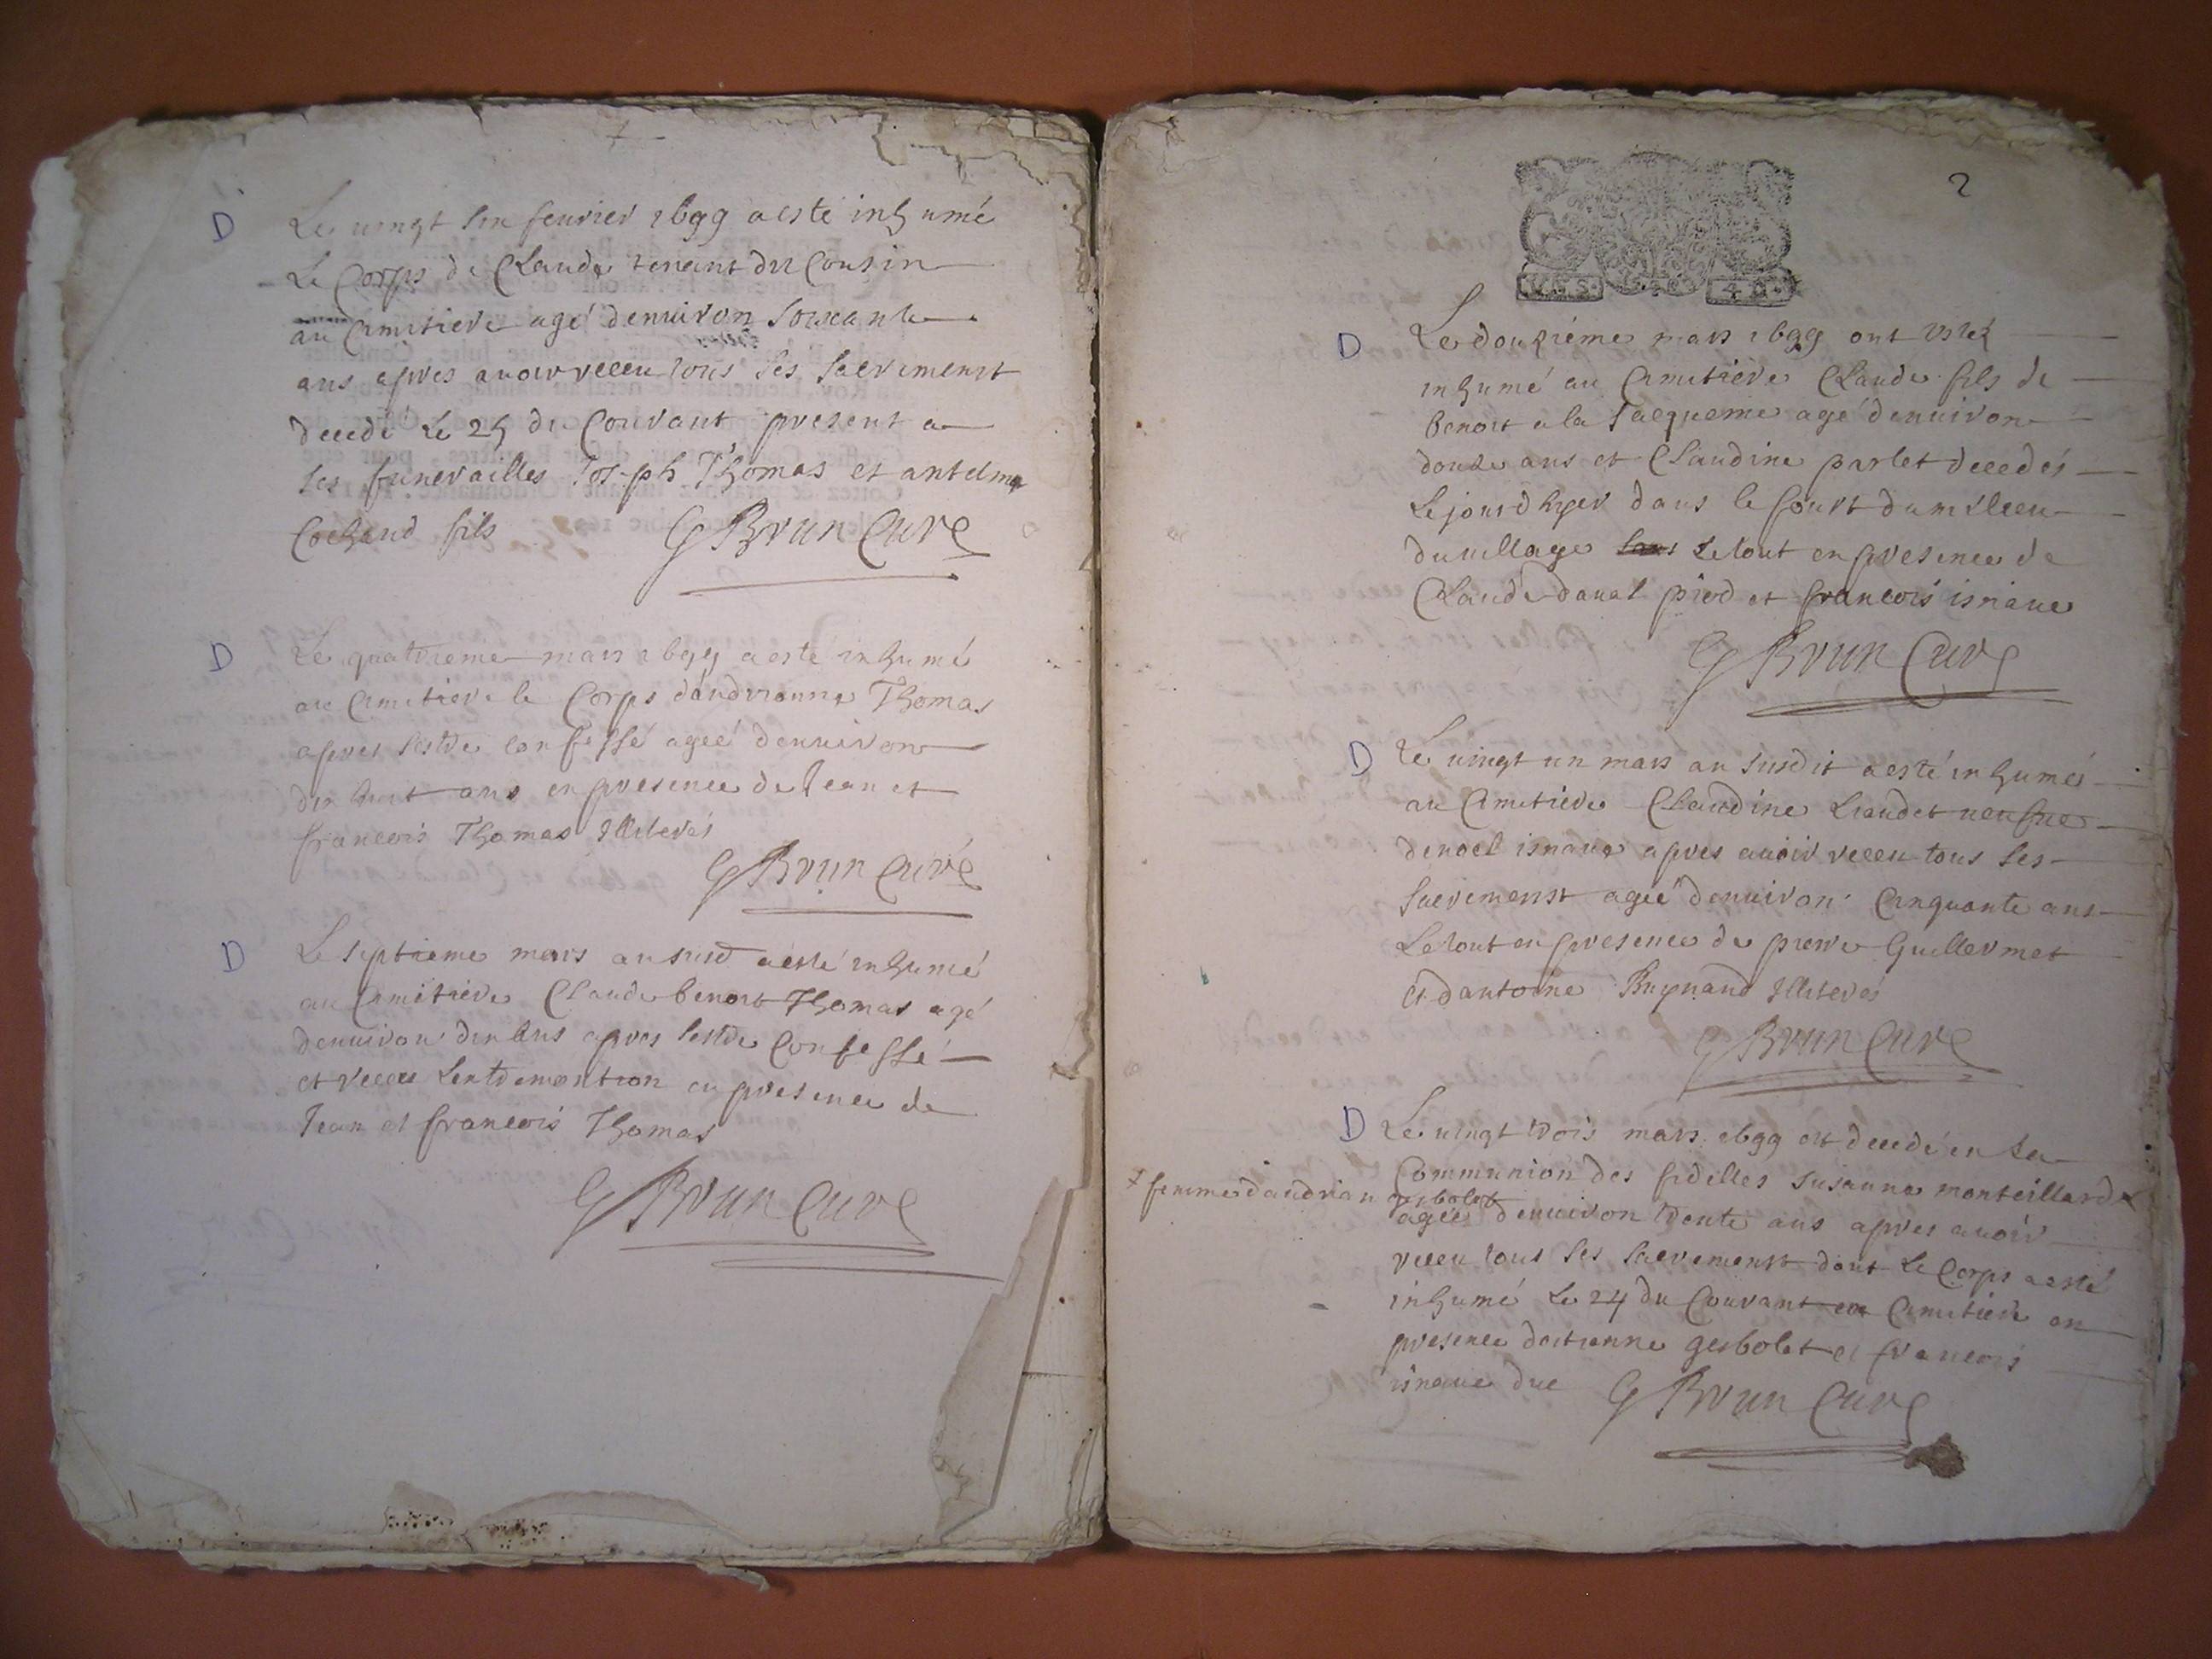 D Le vingt six feurier 1699 a esté inhumé
Le Corps de Claude tenant du Cousin
au Cimitiere agé denuiron soixante
ans apres auoir receu tous ses sacrements
decedé le 25 du Courant present a
ses funerailles Joseph Thomas et antelme
Cochand fils G Brun Curé
D Le quatrieme mars 1699 a esté inhumé
au Cimitiere le Corps dandrianne Thomas
apres sestre confessé ageé denuiron
dix huit ans en presence de Jean et
francois Thomas Illiterés
G Brun Curé
D Le septieme mars an susd a esté inhumé
au Cimitiere Claude benoit Thomas agé
denuiron dix ans apres sestre Confessé
et receu en presence de
Jean et francois Thomas
G Brun Curé
2
D Le douzième mars 1699 ont estéz
inhumé au Cimitiere Claude fils de
benoit a la Jacqueme agé denuiron
douze ans et Claudine parlet decedés
Lejourdhyer dans le dumilieu
duuillage Letout en presence de
Claude et francois isnaue
G Brun Curé
D Le vingt un mars an susdit a esté inhumeé
au Cimitiere Claudine Liaudet
denoel isnaue apres auoir receu tous ses
sacrements ageé denuiron Cinquante ans
Letout en presence de pierre Guillermet
et dantoine Reynaud Illiterés
G Brun Curé
D Le vingt trois mars 1699 est decedé en La
Communion des fidelles susanne monteillard
femme dandrian gesbolet
ageé denuiron trente ans apres auoir
receu tous ses sacrements dont Le Corps a esté
inhumé Le 24 du Courant au Cimitiere en
presence destienne gesbolet et francois
isnaue G Brun Curé